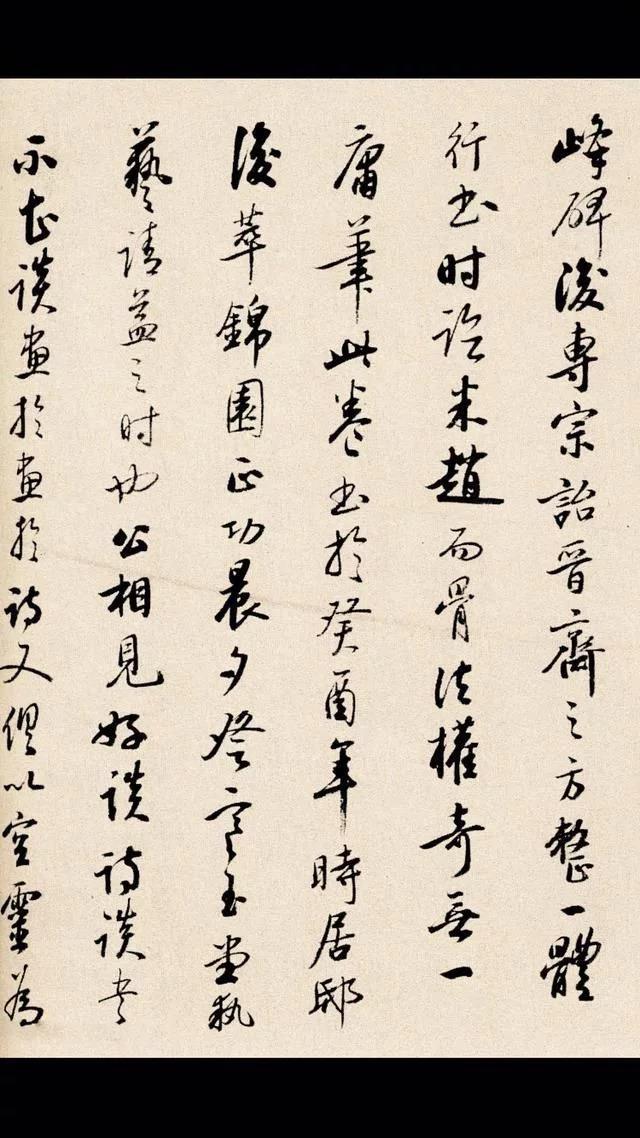 峰碑後專宗詒晋齋之方整一體
行书时米趙而骨法權奇無一
庸筆此卷书於癸酉年時居邸
後萃錦園正功晨夕登寒玉堂執
藝請益之时也公相見好談诗談书
不甚談畫於畫於诗又俱以空靈為